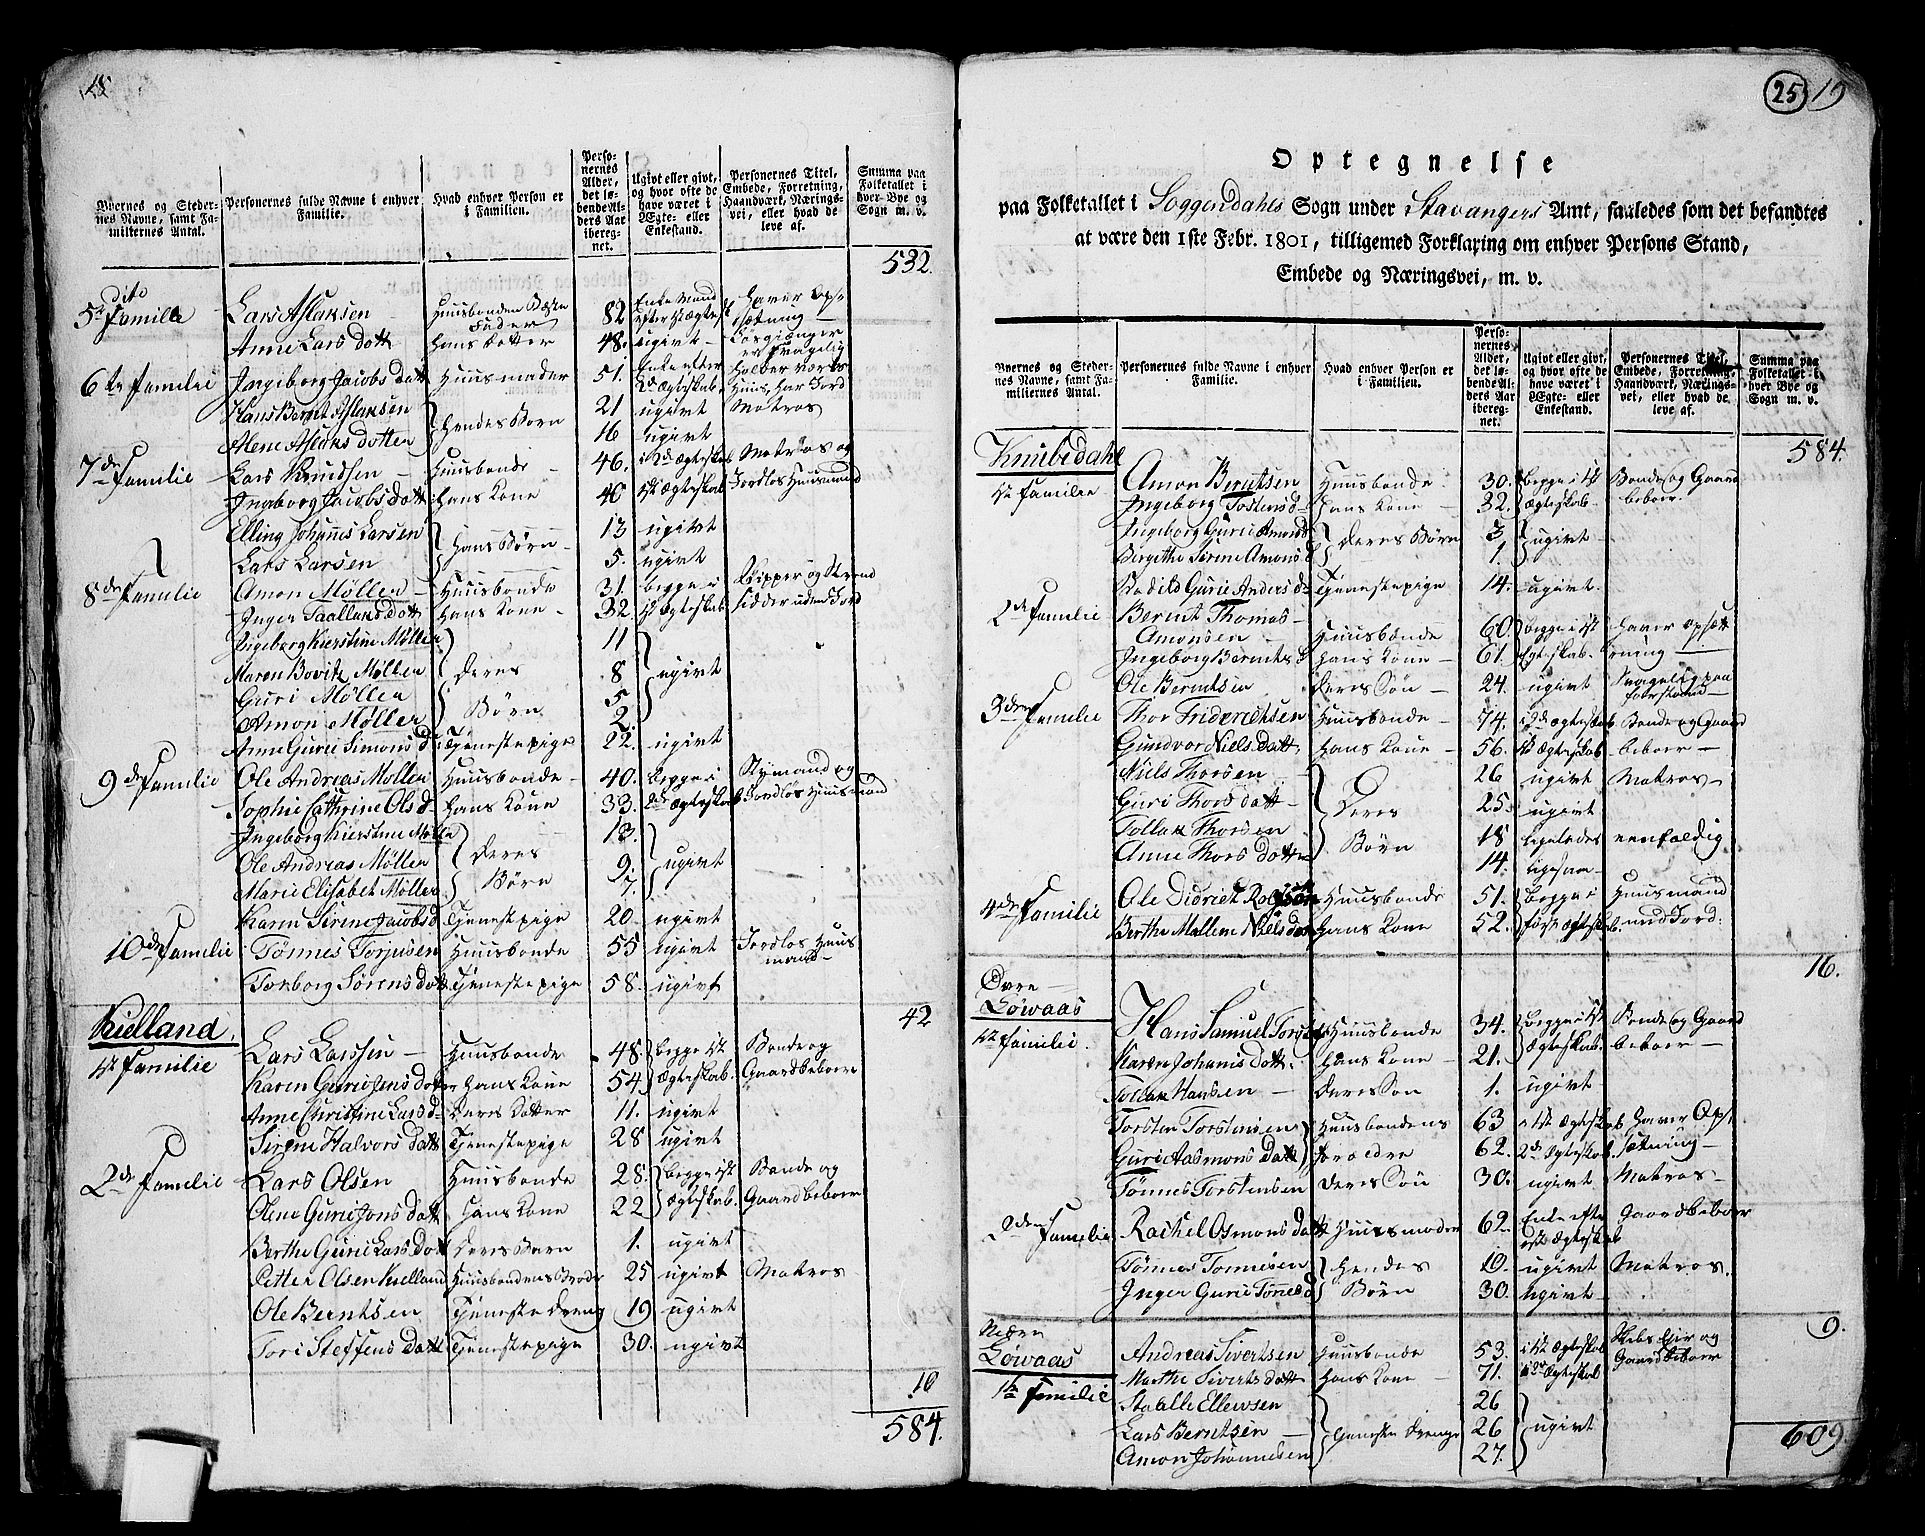 18
Byernes og Stedernes Navne, samt Familiernes Antal.
Personernes fulde Navne i enhver Familie.
Hvad enhver Person er i Familien.
Personernes Alder, det løbende Alders Aar iberegnet.
Ugivt eller givt, og hvor ofte de have været i Ægte- eller Enkestand.
Personernes Titel, Embede, Forretning, Haandværk, Næringsvei, eller hvad de leve af.
Summa paa Folketallet i hver Bye og Sogn m. v.
532.
dito
5t Familie Lars Aslaksen Huusbondens Fader 82 Enkemand
Anne Lars Dott hans Dotter 48. ugivt
6te Familie Ingeborg Jacobs Datt Huusmoder 51. Enke efter
Hans Bernt Aslaksen 21 ugivt Matros
Alene Aslaks Dotter } hendes Børn 16 ugivt
7de Familie Lars Knudsen Huusbonde 46. i 2det ægteskab Matros og
Ingeborg Jacobs Datt hans Kone 40 1st ægteskab Jordløs Huusmand
Elling Johannes Larsen 13 ugivt
Lars Larsen } hans Børn 5. ugivt
8de Familie Amon Møller Huusbonde 31. begge i
Inger Saallands Dott hans Kone 32. 1st ægteskab
Ingeborg Kierstine Møller 11
Maren Bovitz Møller } deres 8 } ugivt
Guri Møller Børn 5
Amon Møller 2.
Anne Gurie Simons D Tjenestepige 22. ugivt
9de Familie Ole Andreas Møller Huusbonde 40. begge i Stymand og
Sophie Cathrine Ols d hans Kone 33. ægteskab Jordløs Huusmand
Ingeborg Kierstine Mølle 13.
Ole Andreas Møller } deres 9. } ugivt
Marie Elisabet Møller Børn 7.
Karen Sirene Jacobs d Tjenestepige 20. ugivt
10de Familie Tønnes Torjusen Huusbonde 55 ugivt Jordløs Huusmand
Torborg Sørens Dott Tjenestepige 58. ugivt
42
Kielland.
1st Familie Lars Larssen Huusbonde 48 begge i 1st Bonde og
Karen Gurie Jens Dotter hans Kone 54 Ægteskab. Gaardbeboere
Anne Christine Lars d deres Dotter 11. ugivt
Sirene Halvors Datt Tjenestepige 28 ugivt
2de Familie Lars Olsen Huusbonde 28. begge i 1st Bonde og
Olene Gurie Jons Datt hans Kone 22 ægteskab. Gaardbeboere
Berthe Gurie Lars Datt deres Barn 1. ugivt
Petter Olsen Kielland Huusbondens Broder 25 ugivt Matros
Ole Berntsen Tjeneste Dreng 19 ugivt
Tori Steffens Datt Tjenestepige 30. ugivt
10
584.
25 19
Optegnelse
paa Folketallet i Soggendahls Sogn under Stavangers Amt, saaledes som det befandtes
at være den 1ste Febr. 1801, tilligemed Forklaring om enhver Persons Stand,
Embede og Næringsvei, m. v.
Byernes og Stedernes Navne, samt Familiernes Antal.
Personernes fulde Navne i enhver Familie.
Hvad enhver Person er i Familien.
Personernes Alder, det løbende Alders Aar iberegnet.
Ugivt eller givt, og hvor ofte de have været i Ægte- eller Enkestand.
Personernes Titel, Embede, Forretning, Haandværk, Næringsvei, eller hvad de leve af.
Summa paa Folketallet i hver Bye og Sogn m. v.
584.
Knubedahl
1st Familie Amon Berntsen Huusbonde 30. begge i 1st Bonde og Gaard
Ingeborg Tostens d hans Kone 32. ægteskab beboer.
Ingeborg Gurie Amonsd 3
Birgithe Sirene Amons d } deres Børn 1. } ugivt
Bodild Gurie Anders d Tjenestepige 14. ugivt.
2de Familie Bernt Thomas
Amonsen Huusbonde 60. begge i 1st haver opsæt
Ingeborg Bernts d hans Kone 61. Egteskab. ning
Ole Berntsen deres Søn 24. ugivt
3de Familie Thor Fridrichsen Huusbonde 74. i 2d ægteskab Bonde og Gaard
Gundvor Niels Datt. hans Kone 56. 1st ægteskab beboer
Niels Thorsen 26 ugivt Matros
Guri Thors datt } Deres 25. ugivt
Tollak Thorsen Børn 18 ligeledes eenfoldig
Anne Thors Dotter 14. ligesaa
4de Familie Ole Didrick Huusbonde 51. begge i Huusmand
Berthe Mallene Niels dat hans Kone 52. første ægteskab. med Jord.
16.
Øvre
Løwaas
1st Familie Hans Samuel Huusbonde 34. begge i 1st Bonde og Gaard
Karen Johanis Datt. hans Kone 21. Ægteskab. beboer
Tollak Hansen deres Søn 1. ugivt
Torsten Torstensen Huusbondens 63 1st Ægteskab haver Op
Guri Aasmons Datt Forældre 62. 2de Ægteskab. sætning
Tønnes Torstensen deres Søn 30. ugivt Matros
2den Familie Rachel Osmons Datt Huusmoder 62. Enke efter Gaardbeboer
Tønnes Tønnesen } hendes 19. ugivt Matros.
Inger Gurie Tønnes d Børn 30. ugivt
9.
Nedre
Løwaas
1te Familie Andreas Sivertsen Huusbonde 53. i 1st ægteskab Gaardbeboer
Marthe Siverts datt hans Kone 71. i 2de Ægteskab
Staalle Ellewsen 26
Lars Berntsen } tjeneste Drenge 26 } ugivt
Amon Johannesen 27.
609.